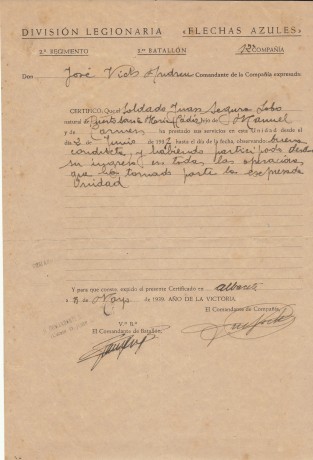 DIVISIÓN LEGIONARIA «FLECHAS AZULES»
2.º REGIMIENTO 2.º BATALLÓN COMPAÑIA
Don José Andreu Comandante de la Compañía expresada
CERTIFICO: Que el Soldado Juan Segura Lobo
natural de Puerto Santa María (Cádiz) hijo de Manuel
y de Carmen ha prestado sus servicios en esta Unidad desde el
día 2 de Junio de 1937 hasta el día de la fecha, observando buena
conducta, y habiendo participado desde
su ingreso en todas las operaciones
que ha tomado parte la expresada
Unidad
Y para que conste, expido el presente Certificado en
a de Mayo de 1939. AÑO DE LA VICTORIA.
El Comandante de Compañía,
V.º B.º
El Comandante de Batallón,